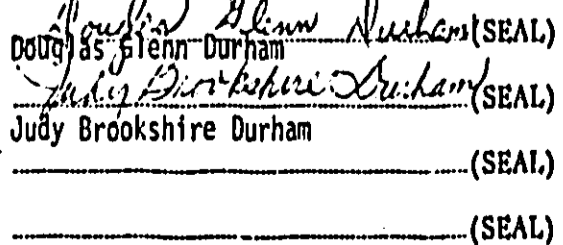 Douglas Glenn Durham (SEAL)
Douglas Glenn Durham
Judy Brookshire Durham (SEAL)
Judy Brookshire Durham
(SEAL)
(SEAL)